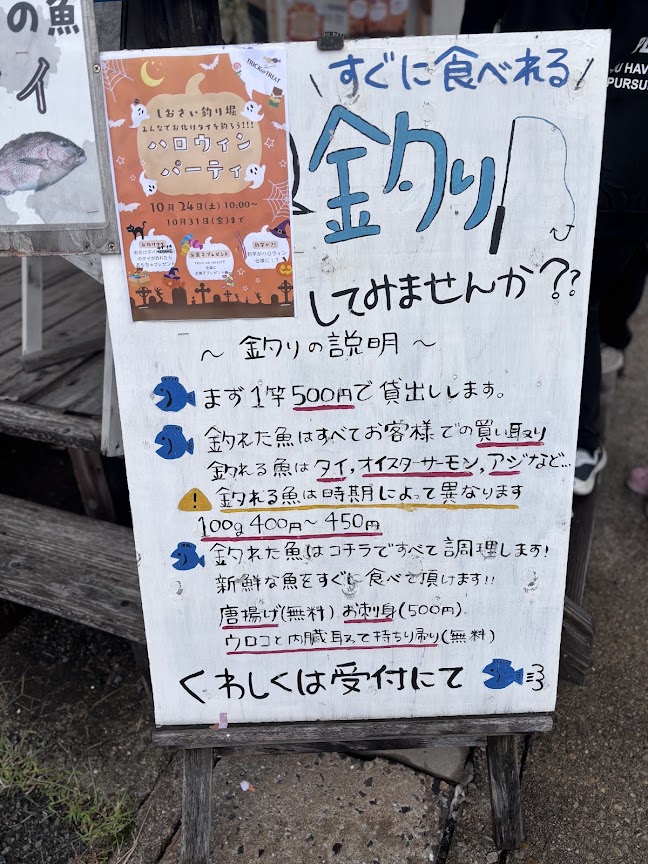 の魚
イ
TRICK or TREAT
しおさい釣り堀
みんなでお化けタイを釣ろう!!!
ハロウィン
パーティ
10月24日(土) 10:00~
10月31日(金)まで
お菓子プレゼント
すぐに食べれる
釣り
してみませんか??
~ 釣りの説明 ~
まず1竿500円で貸出しします。
釣れた魚はすべてお客様での買い取り
釣れる魚はタイ,オイスターサーモン,アジなど...
釣れる魚は時期によって異なります
100g 400円~450円
釣れた魚はコチラですべて調理します!
新鮮な魚をすぐに食べて頂けます!!
唐揚げ(無料) お刺身(500円)
ウロコと内臓取って持ち帰り(無料)
くわしくは受付にて
U HAV
PURSU